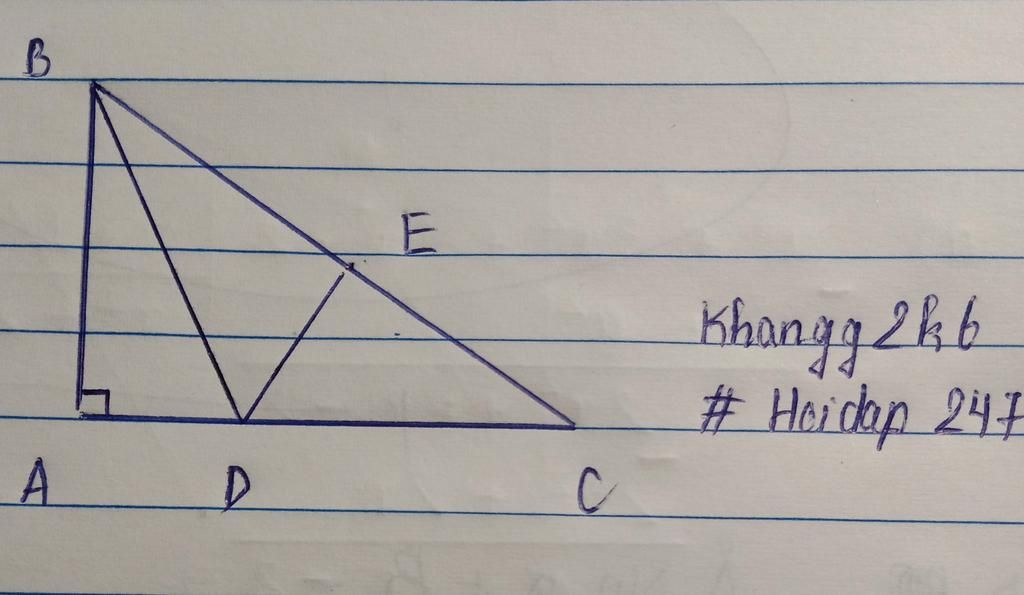 B
E
Khangg 2k6
# Hoidap 247
A D C